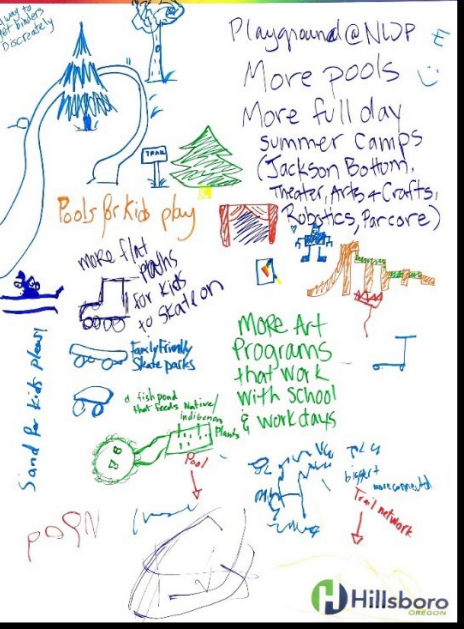 way to
get binders
Discreately
Playground@NWP
More pools
More full day
summer camps
(Jackson Bottom,
Theater, Arts + Crafts,
Robotics, Parcore)
TRAIL
Pools for kids play
more flat
paths
for kids
to skate on
Family Friendly
Skate parks
Sand for kids please!
a fish pond
that feeds Native/
indigenous
Plants
MORE Art
Programs
that work
with school
& workdays
Pool
bigger +
more connected
Trail network
Hillsboro
OREGON